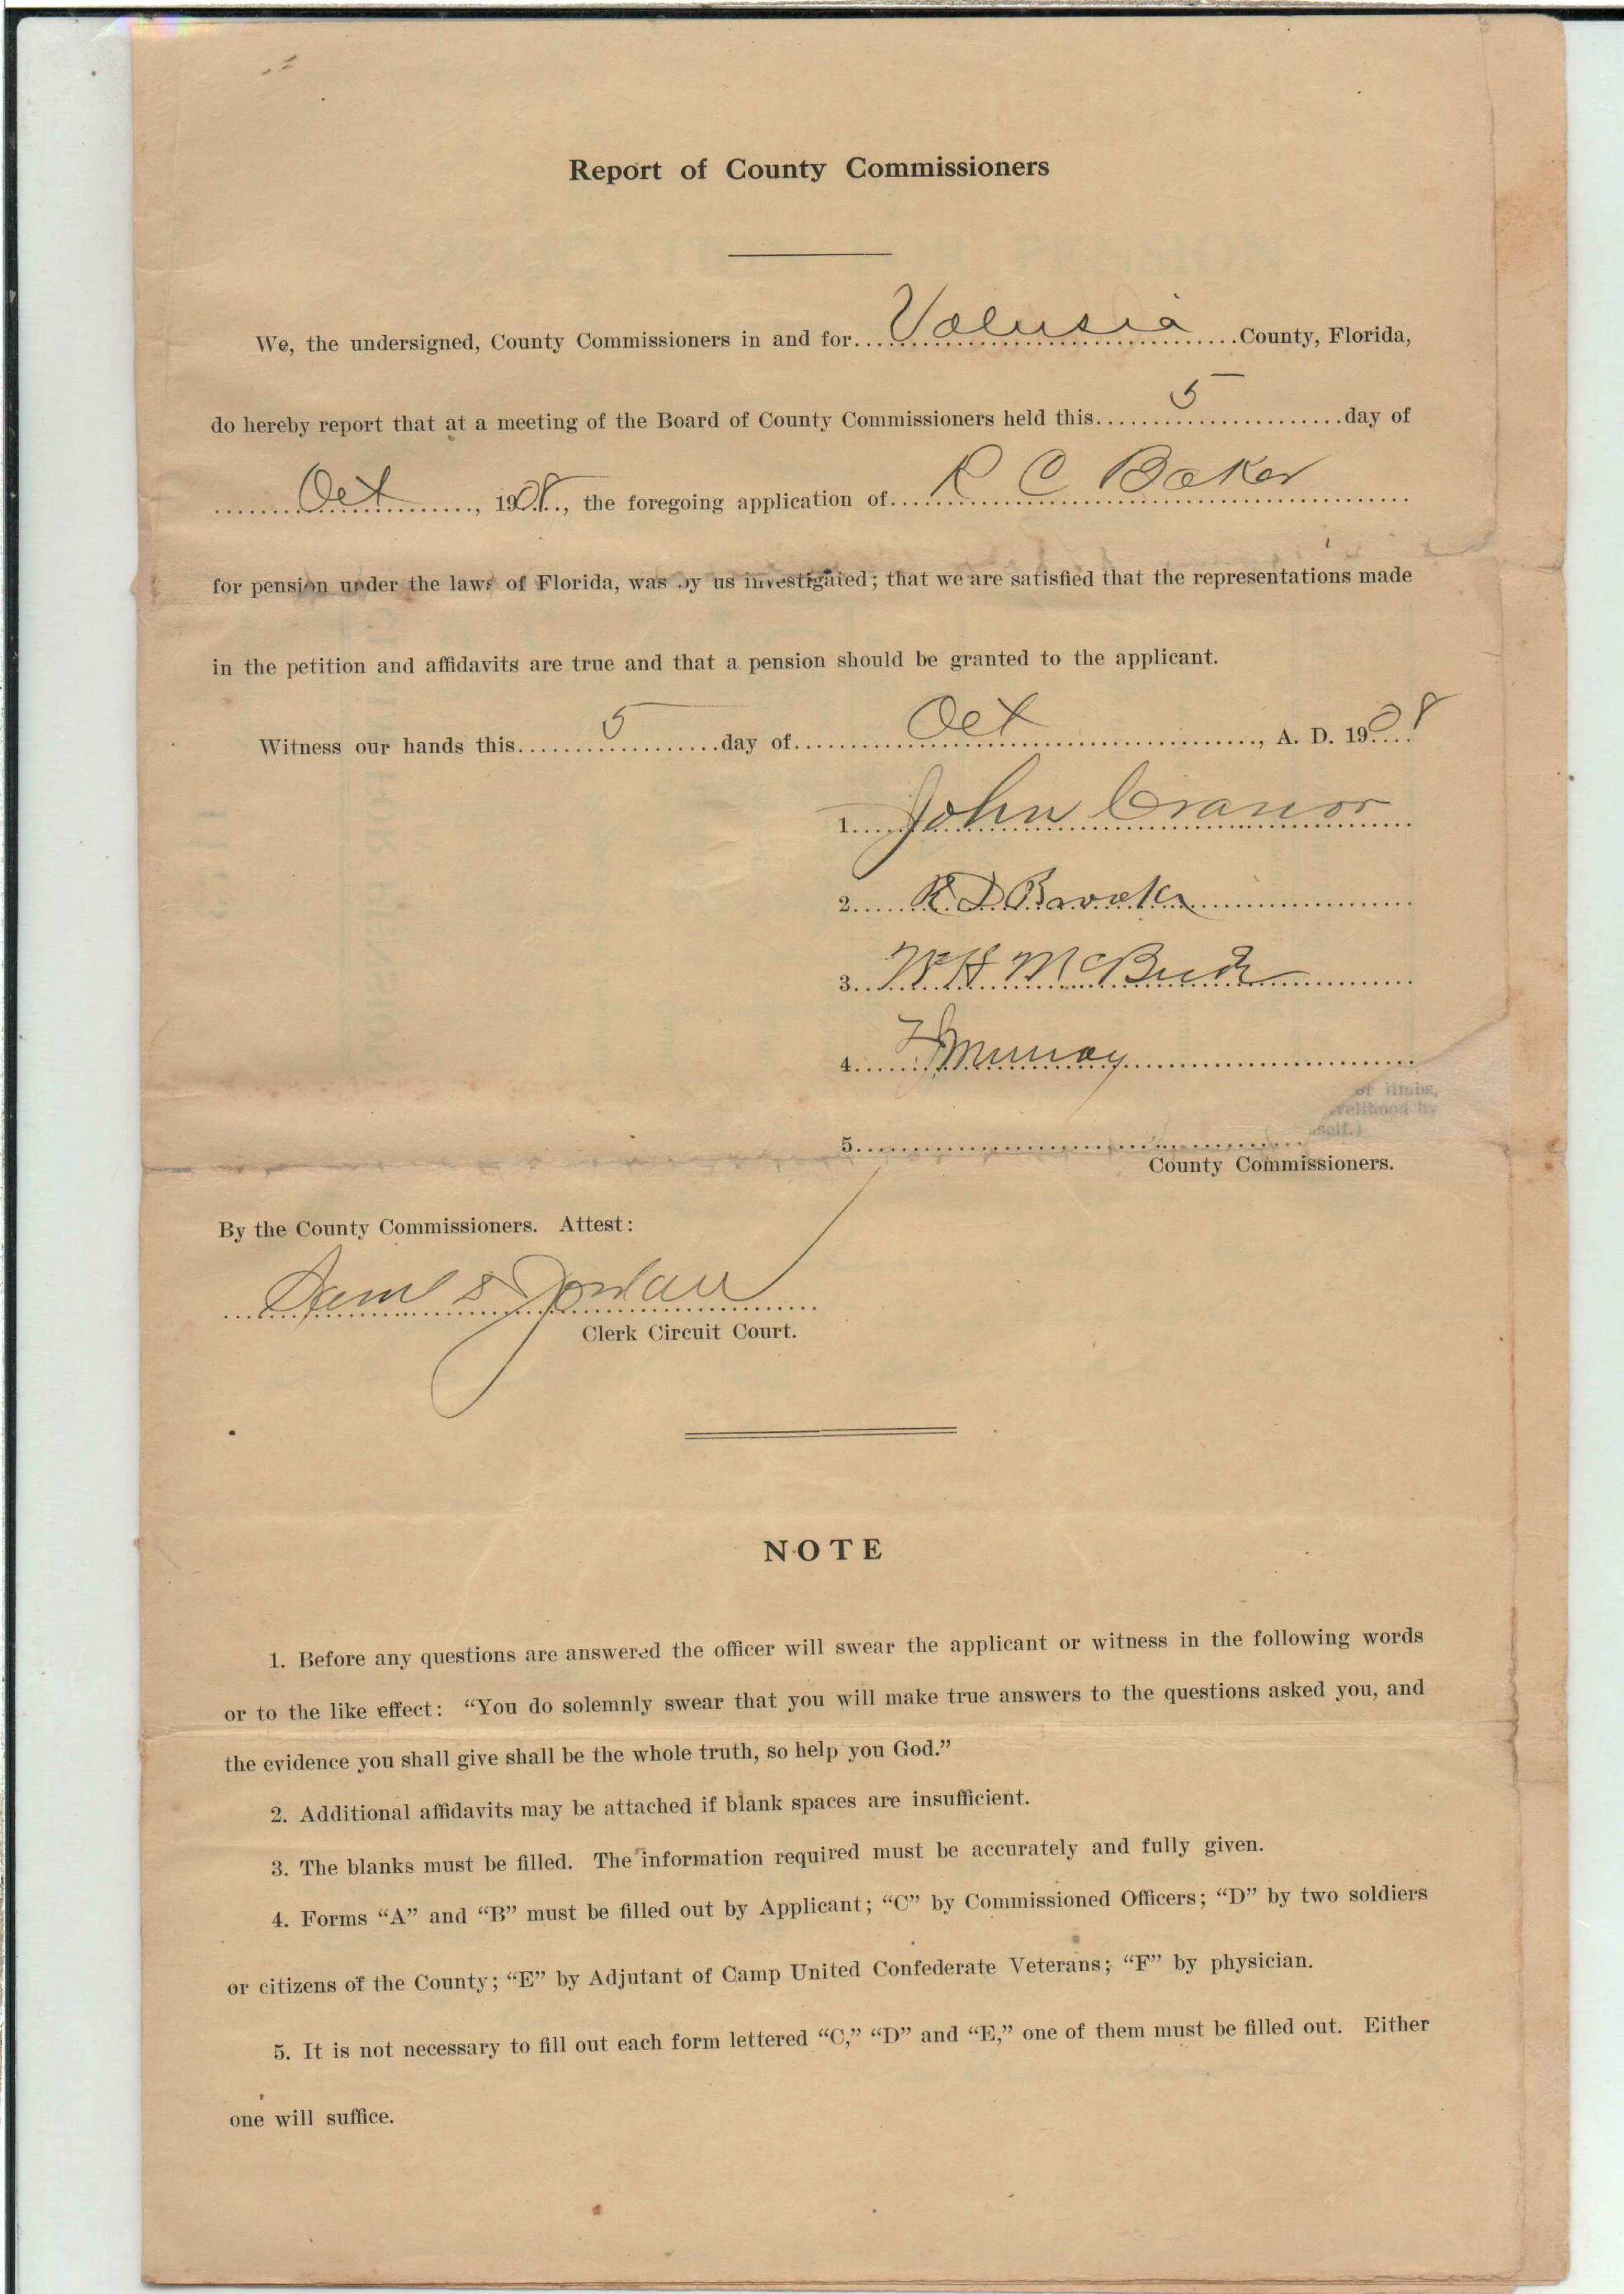 Report of County Commissioners
We, the undersigned, County Commissioners in and for Volusia County, Florida,
do hereby report that at a meeting of the Board of County Commissioners held this 5 day of
Oct, 190, the foregoing application of R C Baker
for pension under the laws of Florida, was by us investigated; that we are satisfied that the representations made
in the petition and affidavits are true and that a pension should be granted to the applicant.
Witness our hands this 5 day of Oct, A. D. 190
1. John Cranor
2. R. D.
3. W H McBride
4. Murray
of limbs,
velihood by
5.
County Commissioners.
By the County Commissioners. Attest:
Saml D Jordan
Clerk Circuit Court.
NOTE
1. Before any questions are answered the officer will swear the applicant or witness in the following words
or to the like effect: “You do solemnly swear that you will make true answers to the questions asked you, and
the evidence you shall give shall be the whole truth, so help you God.”
2. Additional affidavits may be attached if blank spaces are insufficient.
3. The blanks must be filled. The information required must be accurately and fully given.
4. Forms “A” and “B” must be filled out by Applicant; “C” by Commissioned Officers; “D” by two soldiers
or citizens of the County; “E” by Adjutant of Camp United Confederate Veterans; “F” by physician.
5. It is not necessary to fill out each form lettered “C,” “D” and “E,” one of them must be filled out. Either
one will suffice.